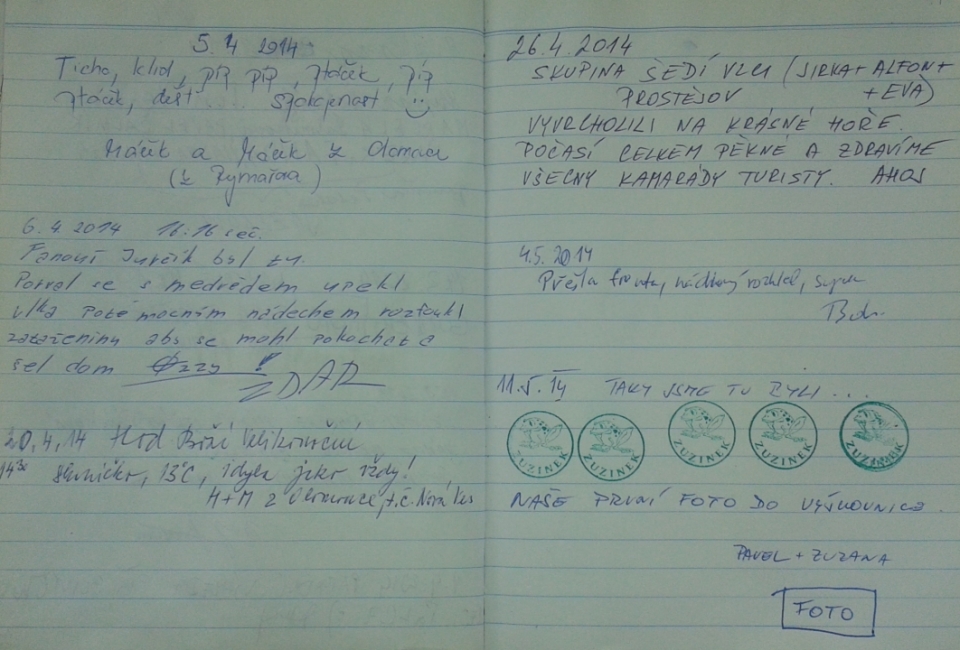 5.4 2014
Ticho, klid, píp píp, ptáček, píp
ptáček, déšť..... spokojenost
Máček a Máček z Olomouce
(z Rýmařova)
6.4 2014 16:16 seč.
Fanouš Jurčík byl tu.
Porval se s medvědem upekl
vlka poté mocným nádechem roztoukl
zataženinu aby se mohl pokochat a
šel dom Ozzy !
ZDAR
20.4.14 Hod Boží Velikonoční
14³⁰ sluníčko, 13°C, idyla jako vždy!
M+M z Olomouce, t.č. Nová Ves
26.4.2014
SKUPINA ŠEDÍ VLCI (JIRKA + ALFON +
PROSTĚJOV + EVA)
VYVRCHOLILI NA KRÁSNÉ HOŘE.
POČASÍ CELKEM PĚKNÉ A ZDRAVÍME
VŠECHY KAMARÁDY TURISTY. AHOJ
4.5.2014
Přešla fronta, nádherný rozhled, super
11.5.14 TAKY JSME TU BYLI ...
ZUZINEK ZUZINEK ZUZINEK ZUZINEK ZUZINEK
NAŠE PRVNÍ FOTO DO VÝŠKOVNICE.
PAVEL + ZUZANA
FOTO